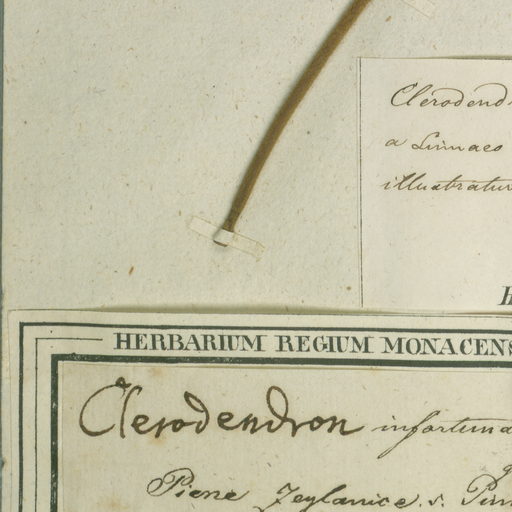 Clerodend
a Linnaeo
illustratur
H
HERBARIUM REGIUM MONACENS
Clerodendron infortuna
Piene Zeylanice. s.